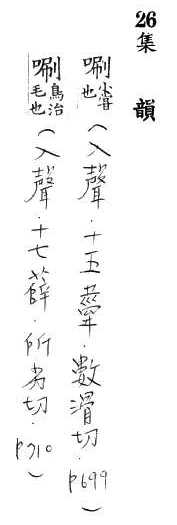 26集 韻
唰小嘗也(入聲.十五舝.數滑切.p699)
唰鳥治毛也(入聲.十七薛.所劣切.p710)